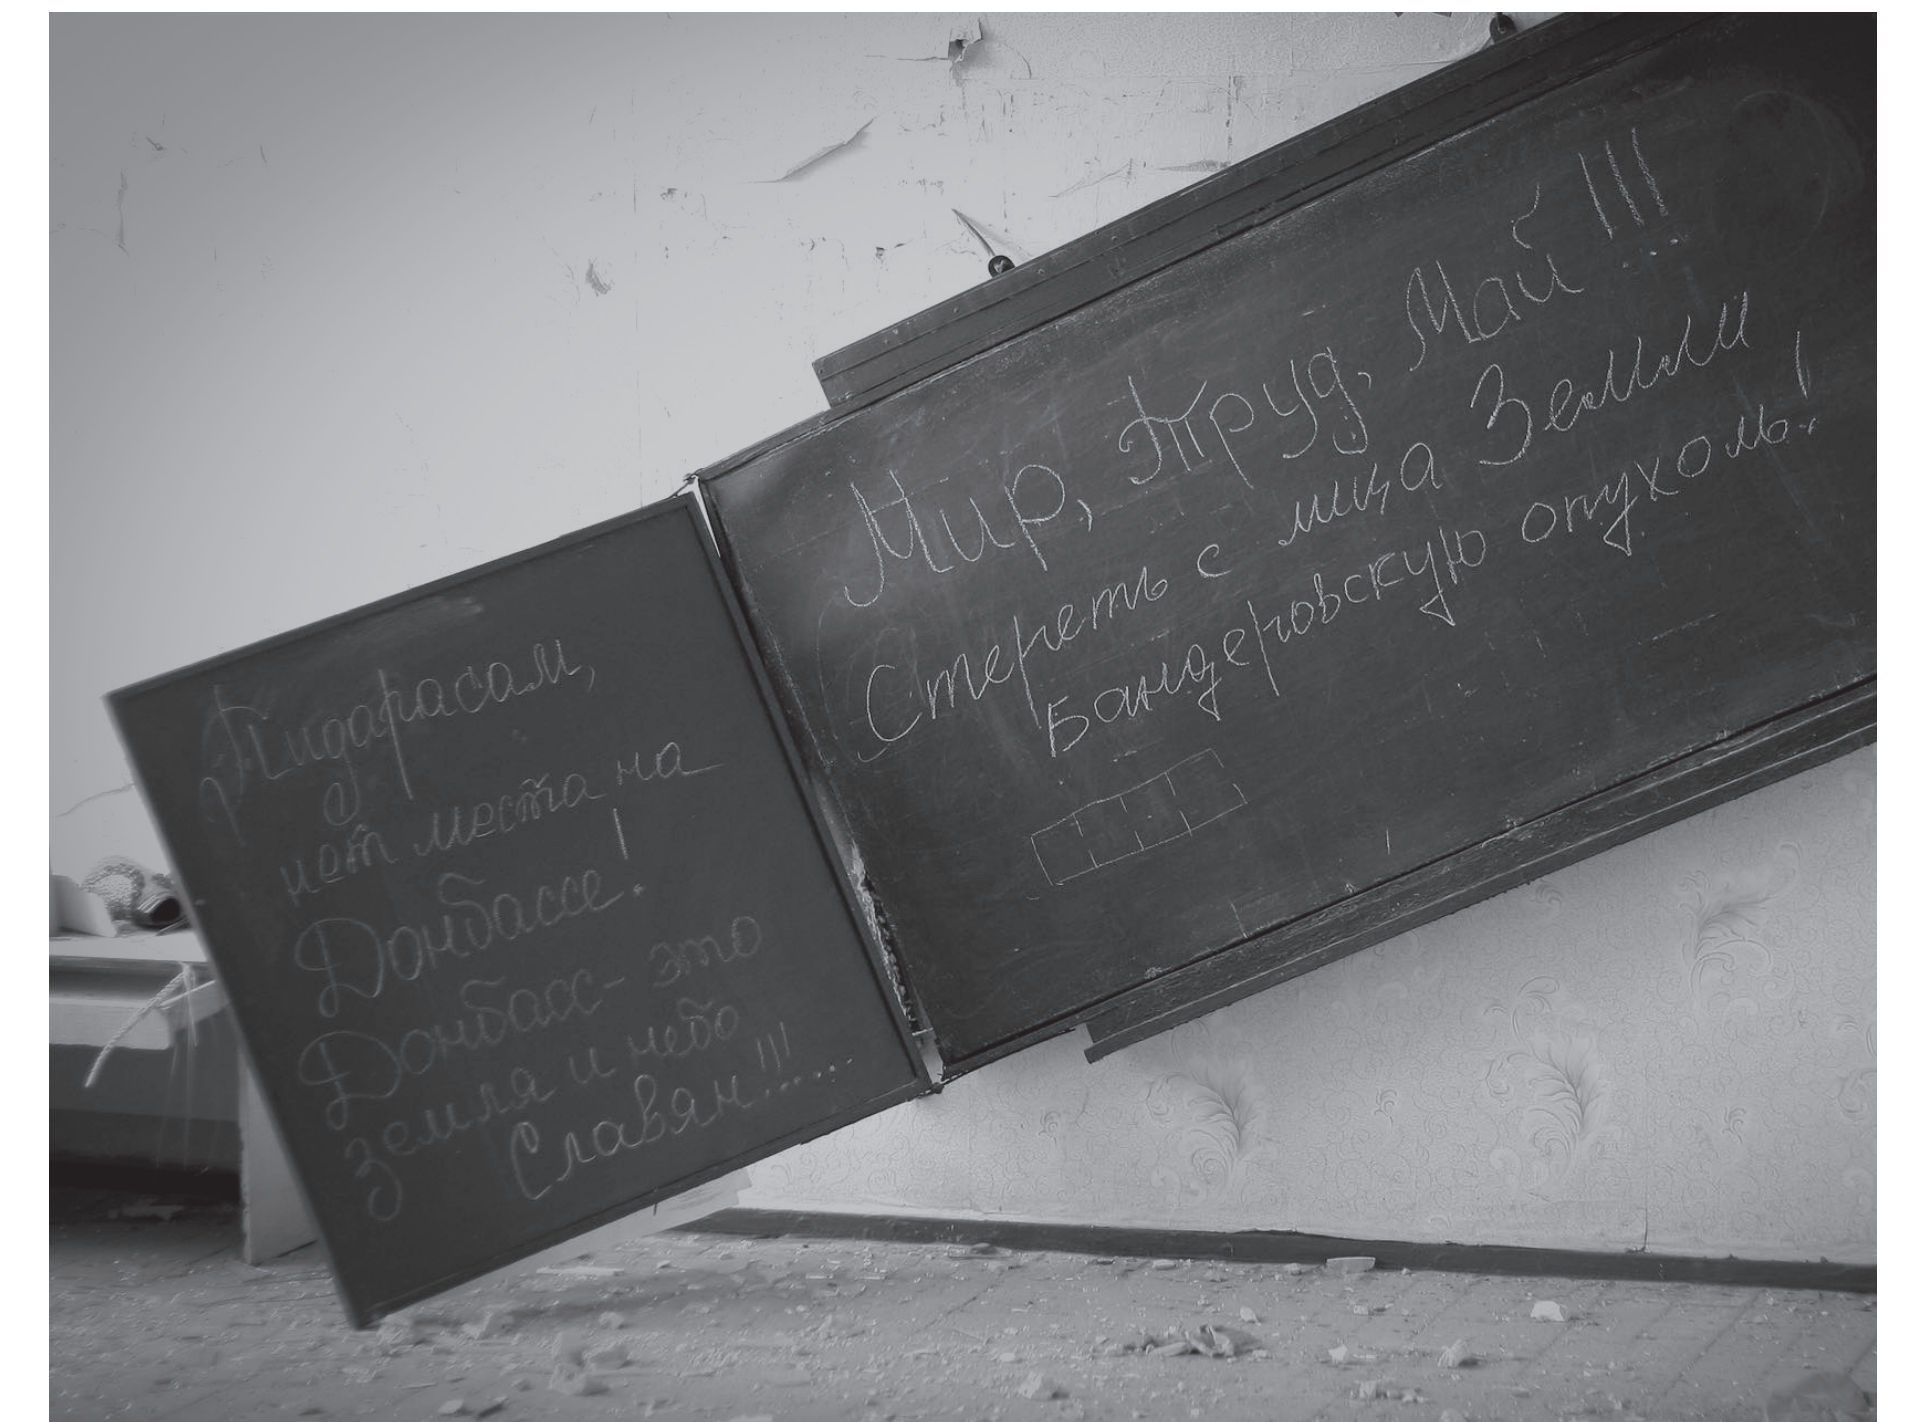 Пидарасам,
нет места на
Донбассе!
Донбасс - это
земля и небо
Славян!!!...
Мир, Труд, Май!!!
Стереть с лица Земли
Бандеровскую опухоль!